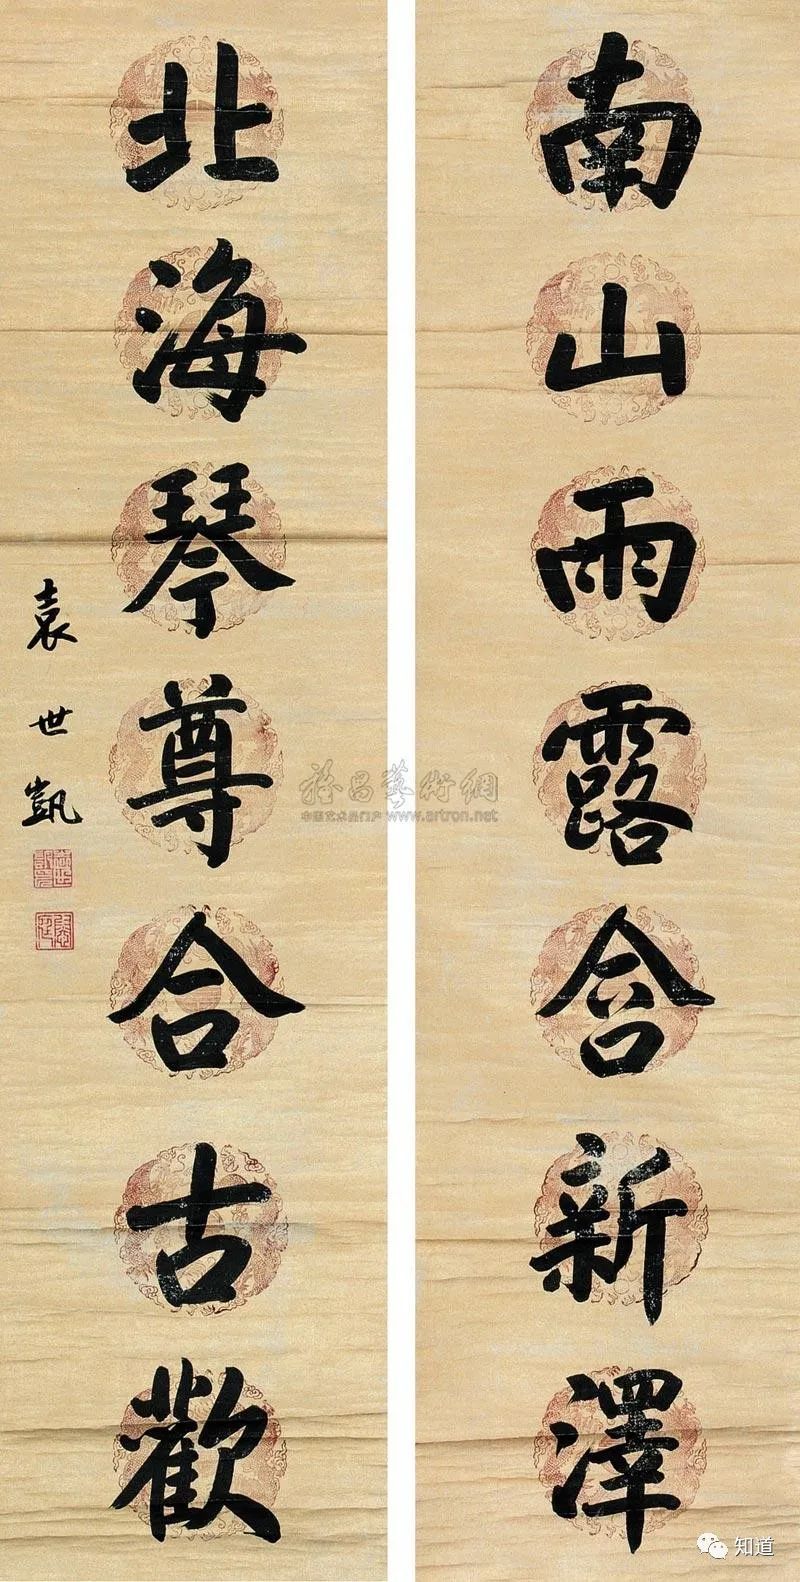 南山雨露含新澤
北海琴尊合古歡
袁世凱
雅昌藝術網
中国艺术品门户 www.artron.net
知道